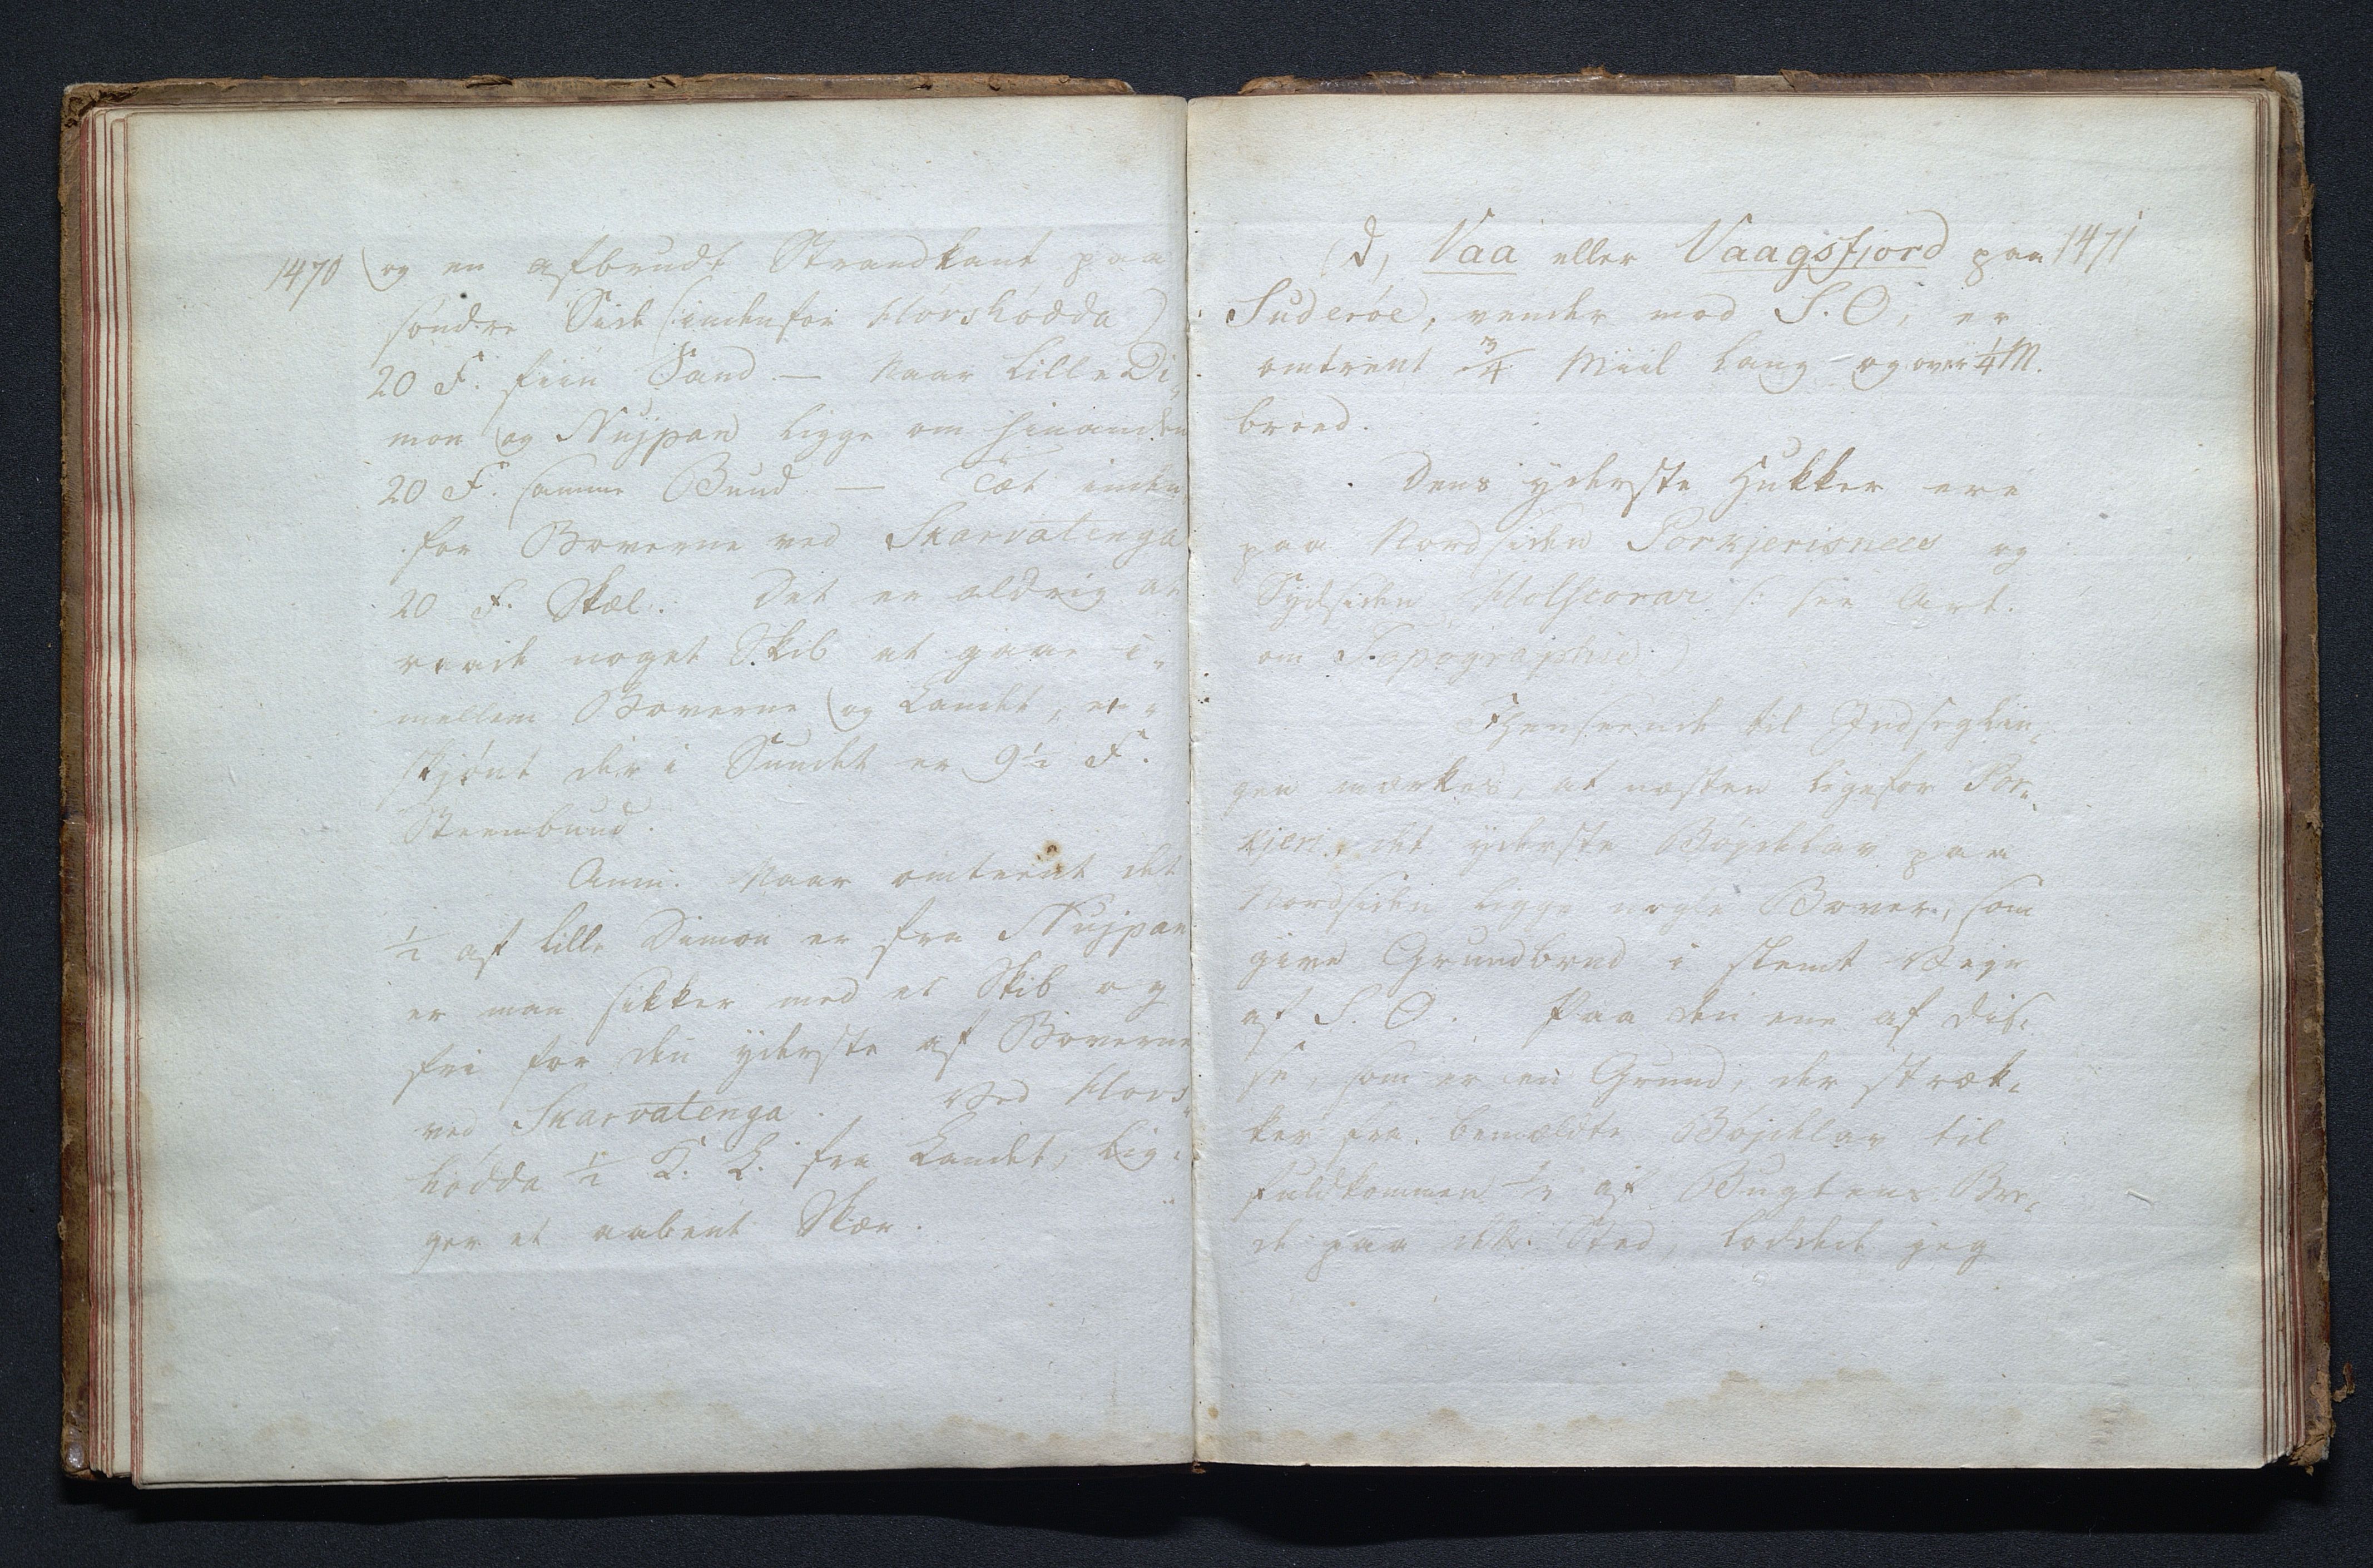 1470 og en afbrudt Strandkant paa
søndre Side (indenfor Hovshødda)
20 F. fiin Sand — Naar Lille Di„
mon og Nujpan ligge om hinanden
20 F. samme Bund — Tæt inden
for Boverne ved Skarvatenga
20 F. Skæl. Det er aldrig at
raade noget Skib at gaae i„
mellem Boverne og Landet, en„
skjønt der i Sundet er 9½ F.
Steenbund.
Anm. Naar omtrent det
½ af lille Dimon er fra Nujpan
er man sikker med et Skib og
fri for den yderste af Boverne
ved Skarvatenga. Ved Hovs„
hødda ½ K. L. fra Landet, lig„
ger et aabent Skær.
d, Vaa eller Vaagsfjord paa 1471
Suderøe, vender mod S. O, er
omtrent ¾ Miil lang og over ¼ M.
breed.
Dens yderste Hukker ere
paa Nordsiden Porkjerisnees og
Sydsiden Holscorar (: see Art.
om Topographie:)
I Henseende til Indseglin„
gen mærkes, at næsten ligefor Por„
kjeri, det yderste Bøjdelav paa
Nordsiden ligge nogle Bover, som
give Grundbrud i slemt Vejr
af S. O. Paa den ene af dis„
se, som er en Grund, der stræk„
ker fra bemældte Bøjdelav til
fuldkommen ½ af Bugtens Bre„
de paa det Sted, loddede jeg